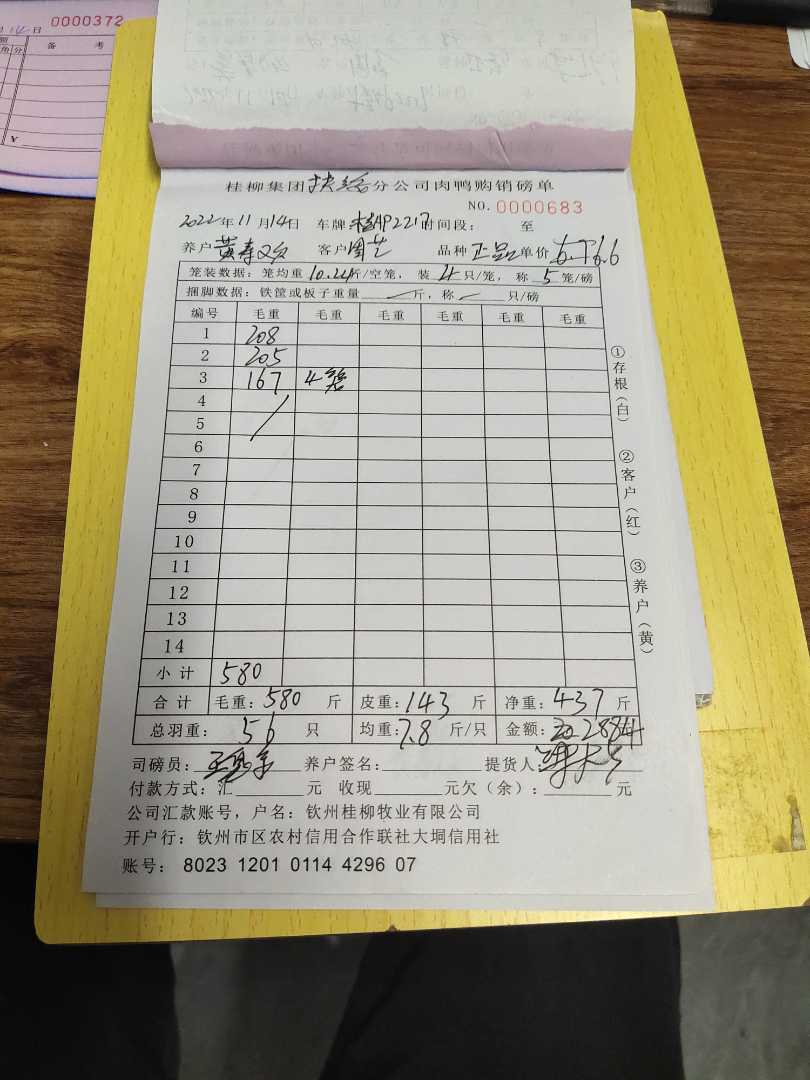 0000372
月14日
角 分 备 考
¥
桂柳集团扶绥分公司肉鸭购销磅单
NO. 0000683
2022年11月14日 车牌 桂AP2217 时间段： 至
养户 黄寿 客户 周芝 品种 正品 单价 6.6
笼装数据：笼均重10.24斤/空笼，装4只/笼，称5笼/磅
捆脚数据：铁筐或板子重量 斤，称 只/磅
编号 毛重 毛重 毛重 毛重 毛重 毛重
1 208
2 205
3 167 4笼
4
5
6
7
8
9
10
11
12
13
14
小计 580
合计 毛重：580 斤 皮重：143 斤 净重：437 斤
总羽重：56 只 均重：7.8 斤/只 金额：2884
司磅员： 养户签名： 提货人：
付款方式：汇 元 收现 元欠（余）： 元
公司汇款账号，户名：钦州桂柳牧业有限公司
开户行：钦州市区农村信用合作联社大垌信用社
账号：8023 1201 0114 4296 07
①存根（白）
②客户（红）
③养户（黄）